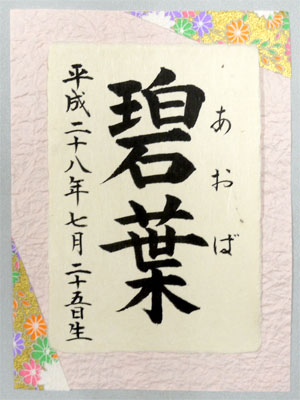 あおば
碧葉
平成二十八年七月二十五日生